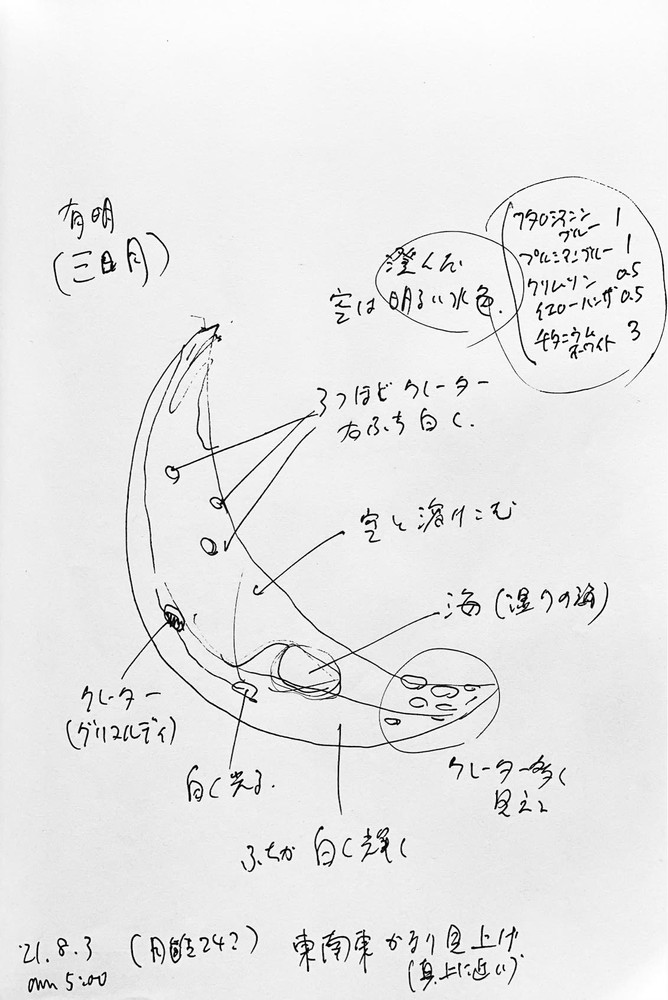 有明
(三日月)
澄んだ
空は明るい水色.
フタロシアニン
ブルー 1
プルシアンブルー 1
クリムソン 0.5
イエローハンザ 0.5
チタニウム
ホワイト 3
3つほどクレーター
右ふち白く.
空と溶けこむ
海(湿りの海)
クレーター
(グリマルディ)
白く光る.
クレーター多く
見える
ふちが白く輝く
'21.8.3 (月齢24?) 東南東 かなり見上げ
am 5:00 (真上に近い)